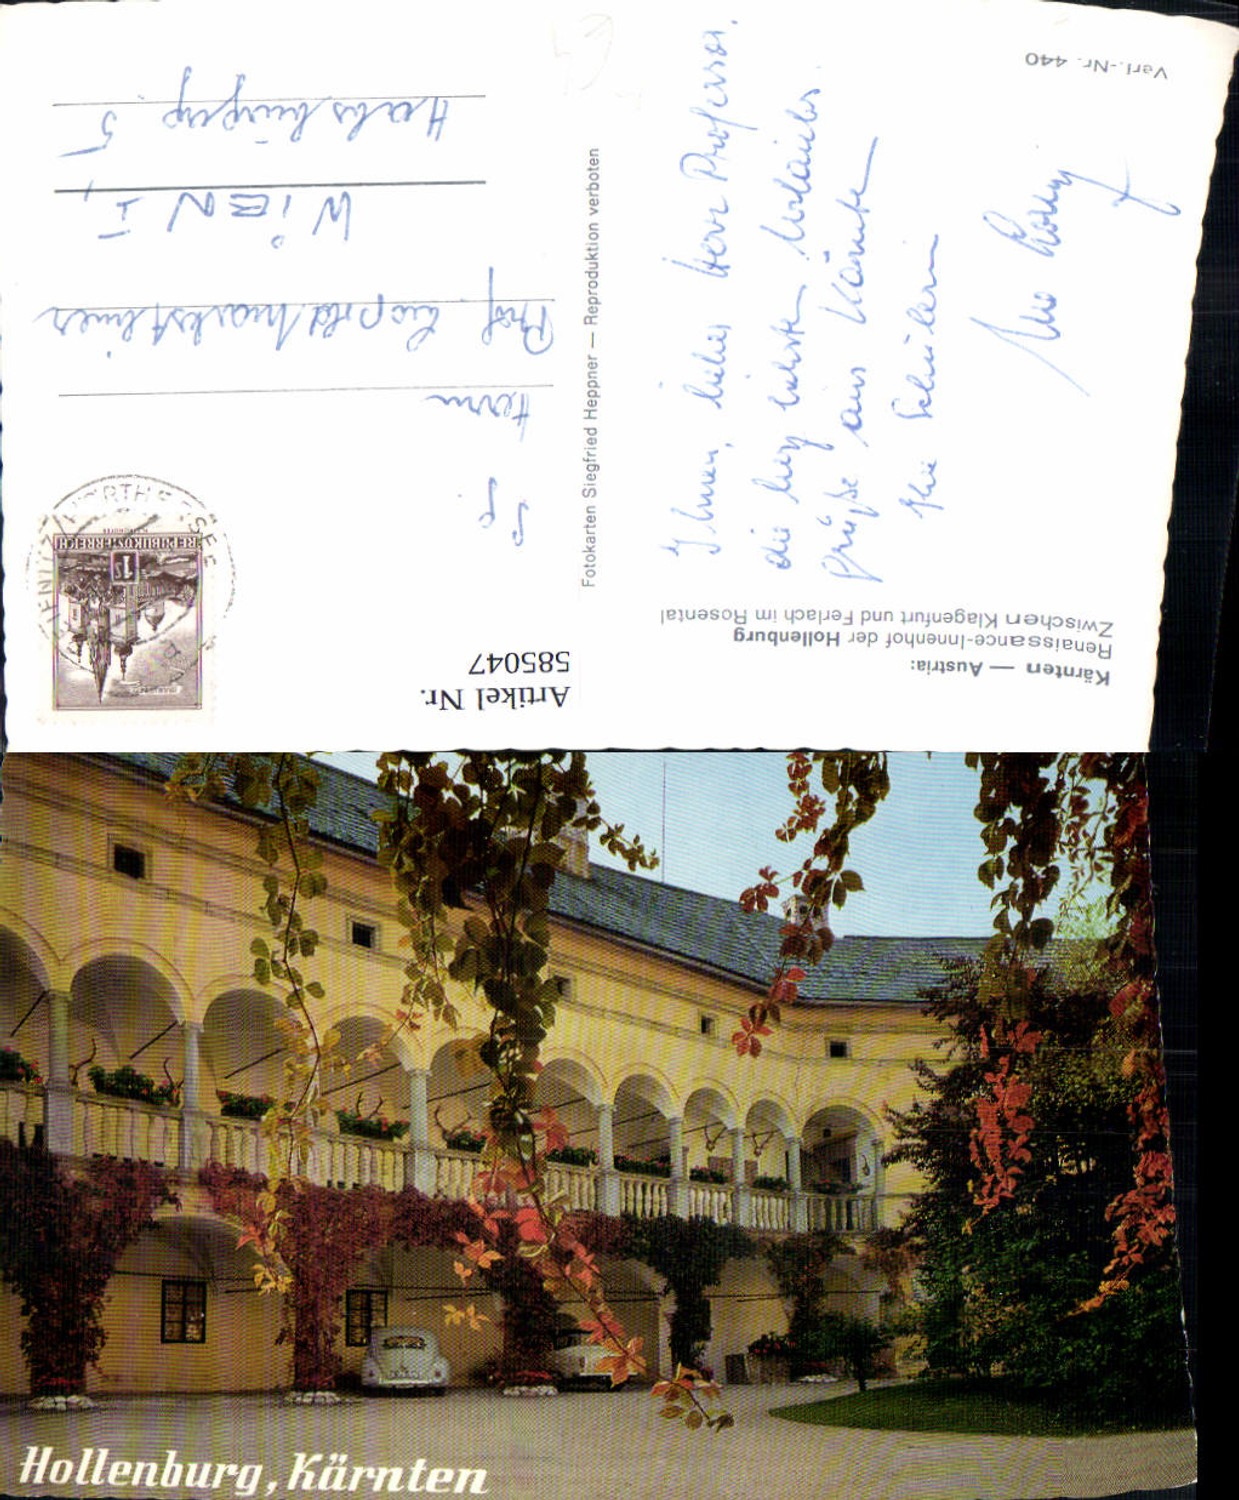 Verl.-Nr. 440
Kärnten — Austria:
Renaissance-Innenhof der Hollenburg
Zwischen Klagenfurt und Ferlach im Rosental
Ihnen, lieber Herr Professor,
die herzlichsten Urlaubs
grüße aus Kärnten
Ihre Schülerin
Fotokarten Siegfried Heppner — Reproduktion verboten
Artikel Nr.
585047
REPUBLIK ÖSTERREICH
1 S
Herrn
Prof. Leopold
WIEN I,
Habsburgerg. 5
Hollenburg, Kärnten